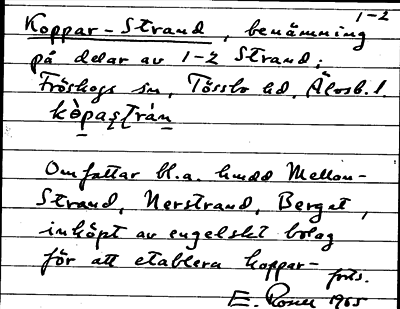 1-2
Koppar-Strand, benämning
på delar av 1-2 Strand;
Fröskogs sn, Tössbo hd, Älvsb. l.
kòpaʂtrán
Omfattar bl.a. hmdd Mellon-
Strand, Nerstrand, Berget,
inköpt av engelskt bolag
för att etablera koppar-
forts.
E. Rosen 1965